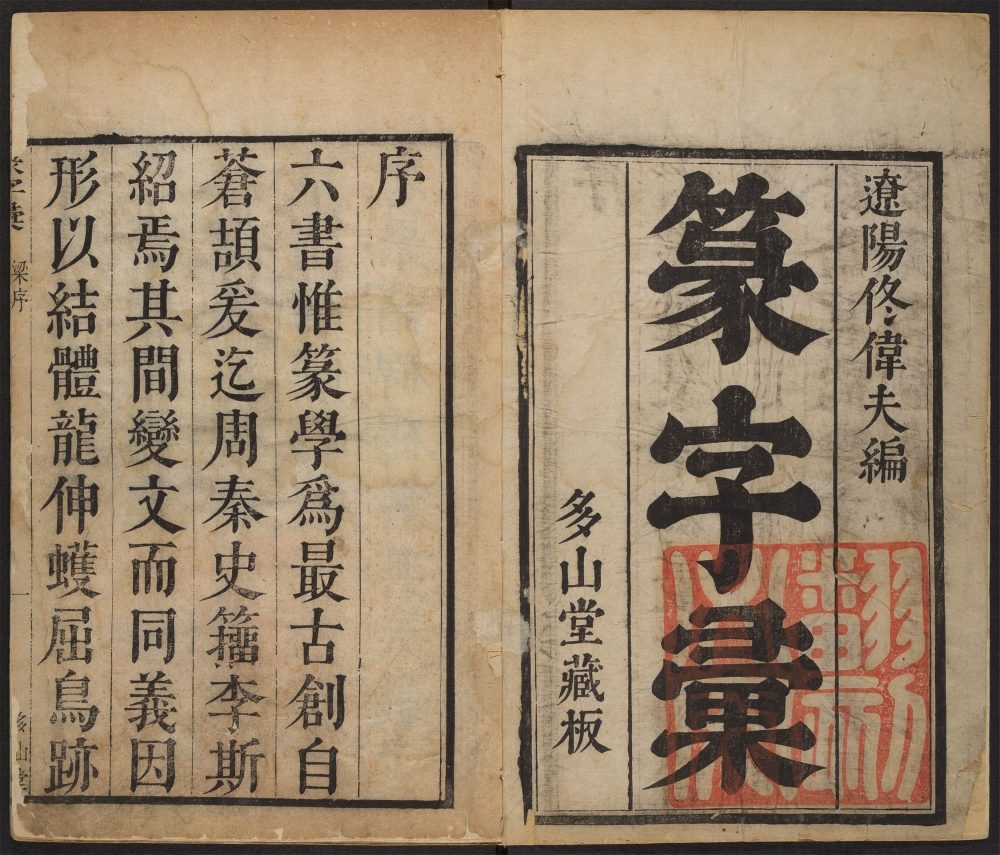 遼陽佟偉夫編
篆字彙
多山堂藏板
序
六書惟篆學爲最古創自
蒼頡爰迄周秦史籀李斯
紹焉其間變文而同義因
形以結體龍伸蠖屈鳥跡
梁序
多山堂